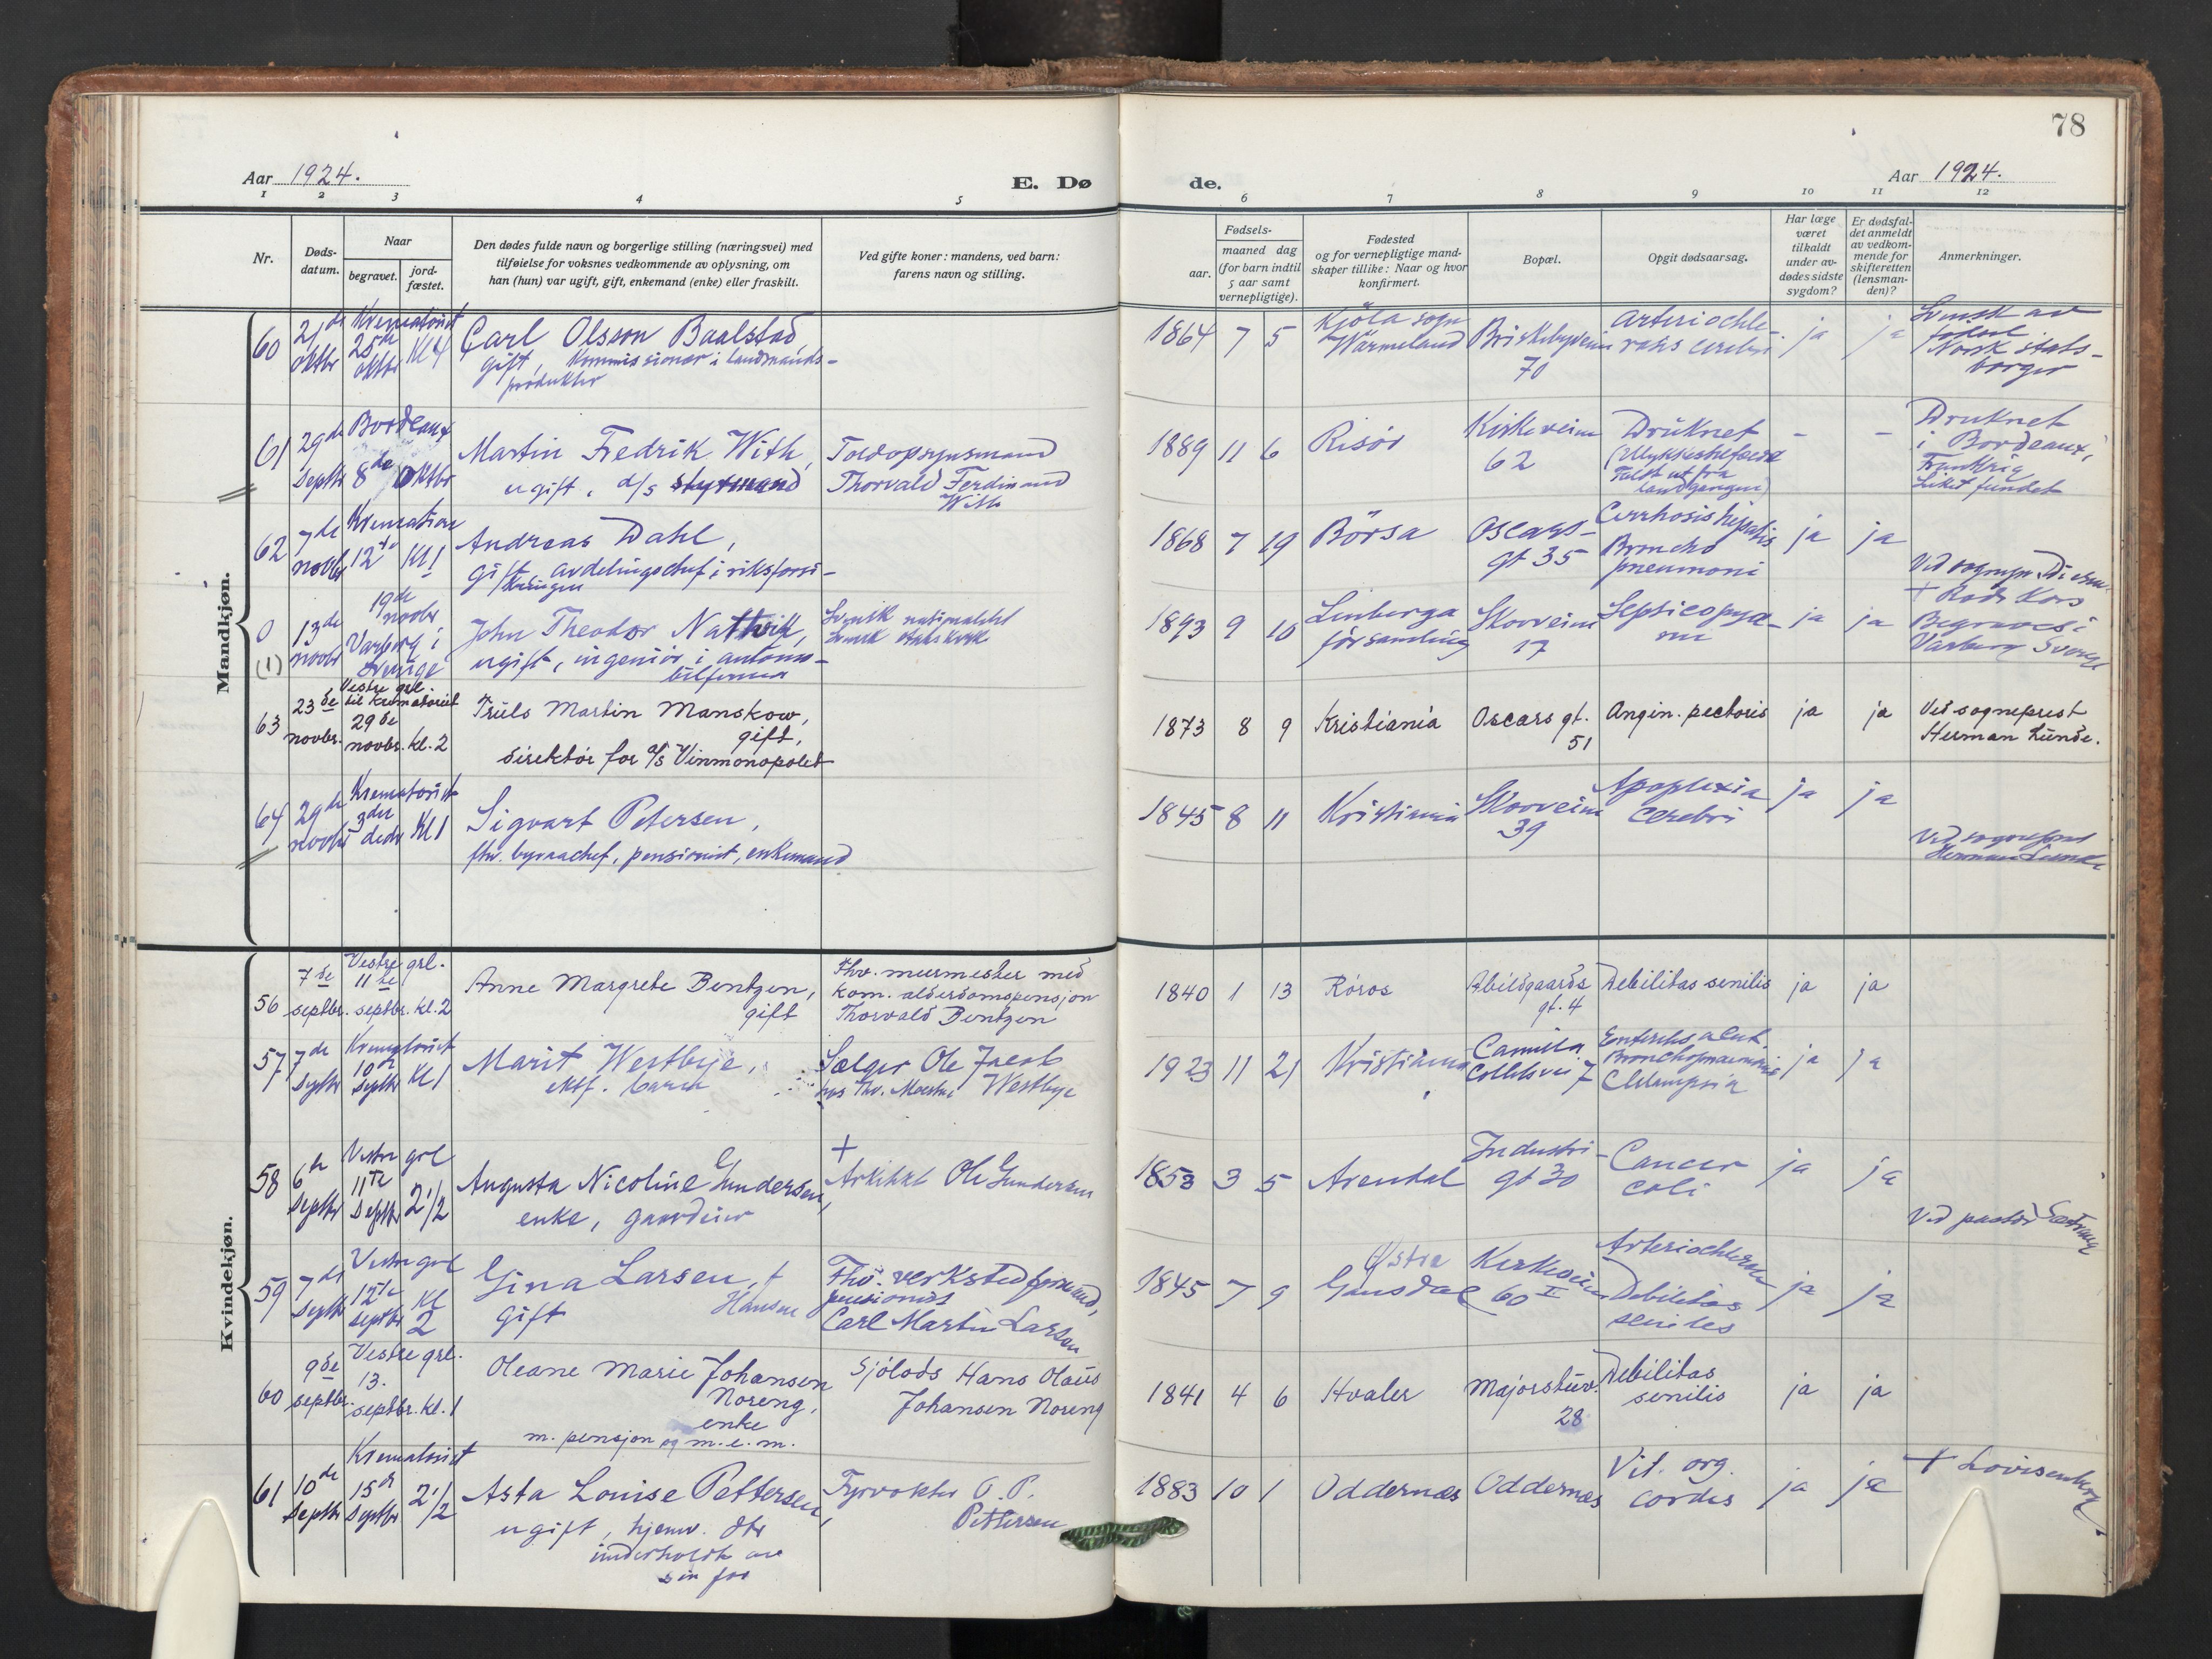 78
Aar 1924.
E. Dø
de.
Aar 1924.
1 2 3 4 5 6 7 8 9 10 11 12
Nr.
Døds-
datum.
Naar
begravet.
jord-
fæstet.
Den dødes fulde navn og borgerlige stilling (næringsvei) med
tilføielse for voksnes vedkommende av oplysning, om
han (hun) var ugift, gift, enkemand (enke) eller fraskilt.
Ved gifte koner: mandens, ved barn:
farens navn og stilling.
Fødsels-
aar.
maaned dag
(for barn indtil
5 aar samt
vernepligtige).
Fødested
og for vernepligtige mand-
skaper tillike: Naar og hvor
konfirmert.
Bopæl.
Opgit dødsaarsag.
Har læge
været
tilkaldt
under av-
dødes sidste
sygdom?
Er dødsfal-
det anmeldt
av vedkom-
mende for
skifteretten
(lensman-
den)?
Anmerkninger.
Mandkjøn.
60
21de
oktbr
Krematoriet
25de
oktbr
Kl 4
Carl Olsson Baalstad
gift, Kommissionær i landmands-
produkter
1864 7 5
Kjöla sogn
Wärmeland
Briskebyveien
70
Arterioschle-
rosis cerebri
ja
ja
Svensk av
fødsel
Norsk stats-
borger
61
29de
Septbr
Bordeaux
8de oktbr
Martin Fredrik With,
ugift, d/s styrmand
Toldopsynsmand
Thorvald Ferdinand
With
1889 11 6
Risör
Kirkeveien
62
Druknet
(Ulykkestilfælde
Faldt ut fra
landgangen)
-
-
Druknet
i Bordeaux,
Frankrig
Liket fundet
62
7de
novbr
Kremation
12te
Kl 1
Andreas Dahl,
gift, avdelingschef i riksforsi-
kringen
1868 7 19
Börsa
Oscars-
gt 35
Cirrhosis hepatis
Broncho
pneumoni
ja
ja
0
(1)
13de
novbr
19de
novbr
Varberg i
Sverige
John Theodor Nathvik,
ugift, ingeniör i automo-
bilfirma
Svensk nationalitet
Svensk statskirke
1893 9 10
Linberga
församling
Skovveien
17
Septicopyæ-
mi
ja
ja
+ Røde Kors
Begraves i
Varberg Sverige
63
23de
novbr.
Vestre grl.
til krematoriet
29de
novbr. kl. 2
Truls Martin Manskow,
gift,
direktør for a/s Vinmonopolet
1873 8 9
Kristiania
Oscars gt.
51
Angin. pectoris
ja
ja
Ved sogneprest
Herman Lunde.
64
29de
novbr
Krematoriet
3die
decbr
Kl 1
Sigvart Petersen,
fhv. byraachef, pensionist, enkemand
1845 8 11
Kristiania
Skovveien
39
Apoplexia
cerebri
ja
ja
Ved sogneprest
Herman Lunde
Kvindekjøn.
56
7de
septbr.
Vestre grl.
11te
septbr. kl. 2
Anne Margrete Bentzen,
gift
Fhv. murmester med
kom. alderdomspensjon
Thorvald Bentzen
1840 1 13
Röros
Abildgaards
gt. 4
Debilitas senilis
ja
ja
57
7de
Septbr
Krematoriet
10de
Septbr
Kl 1
Marit Westbye,
Sælger Ole Jacob
Westbye
1923 11 21
Kristiania
Camilla
Colletsvei 7
Enteritis acut.
Bronchopneumonia
Eklampsia
ja
ja
58
6te
Septbr
Vestre grl
11te
Septbr
2 1/2
Augusta Nicoline Gundersen,
enke, gaardeier
+
Arkitekt Ole Gundersen
1853 3 5
Arendal
Industri-
gt 30
Cancer
coli
ja
ja
Ved pastor
59
7de
Septbr
Vestre grl
12te
septbr
Kl
2
Gina Larsen, f
Hansen
gift
Fhv. verkstedformand,
pensionist
Carl Martin Larsen
1845 7 9
Östre
Gausdal
Kirkeveien
60 II
Arteriosclerose
Debilitas
seniles
ja
ja
60
9de
septbr.
Vestre grl.
13.
septbr. kl. 1
Oleane Marie Johansen
Noreng,
enke
m. pensjon og m.e.m.
Sjölods Hans Olaus
Johansen Noreng
1841 4 6
Hvaler
Majorstuv.
28
Debilitas
senilis
ja
ja
61
10de
Septbr
Krematoriet
15de
Septbr
2 1/2
Asta Louise Pettersen,
ugift, hjemv. dtr
underholdt av
sin far
Fyrvokter O. P.
Pettersen
1883 10 1
Oddernæs
Oddernæs
Vit. org.
cordis
ja
ja
+ Lovisenberg